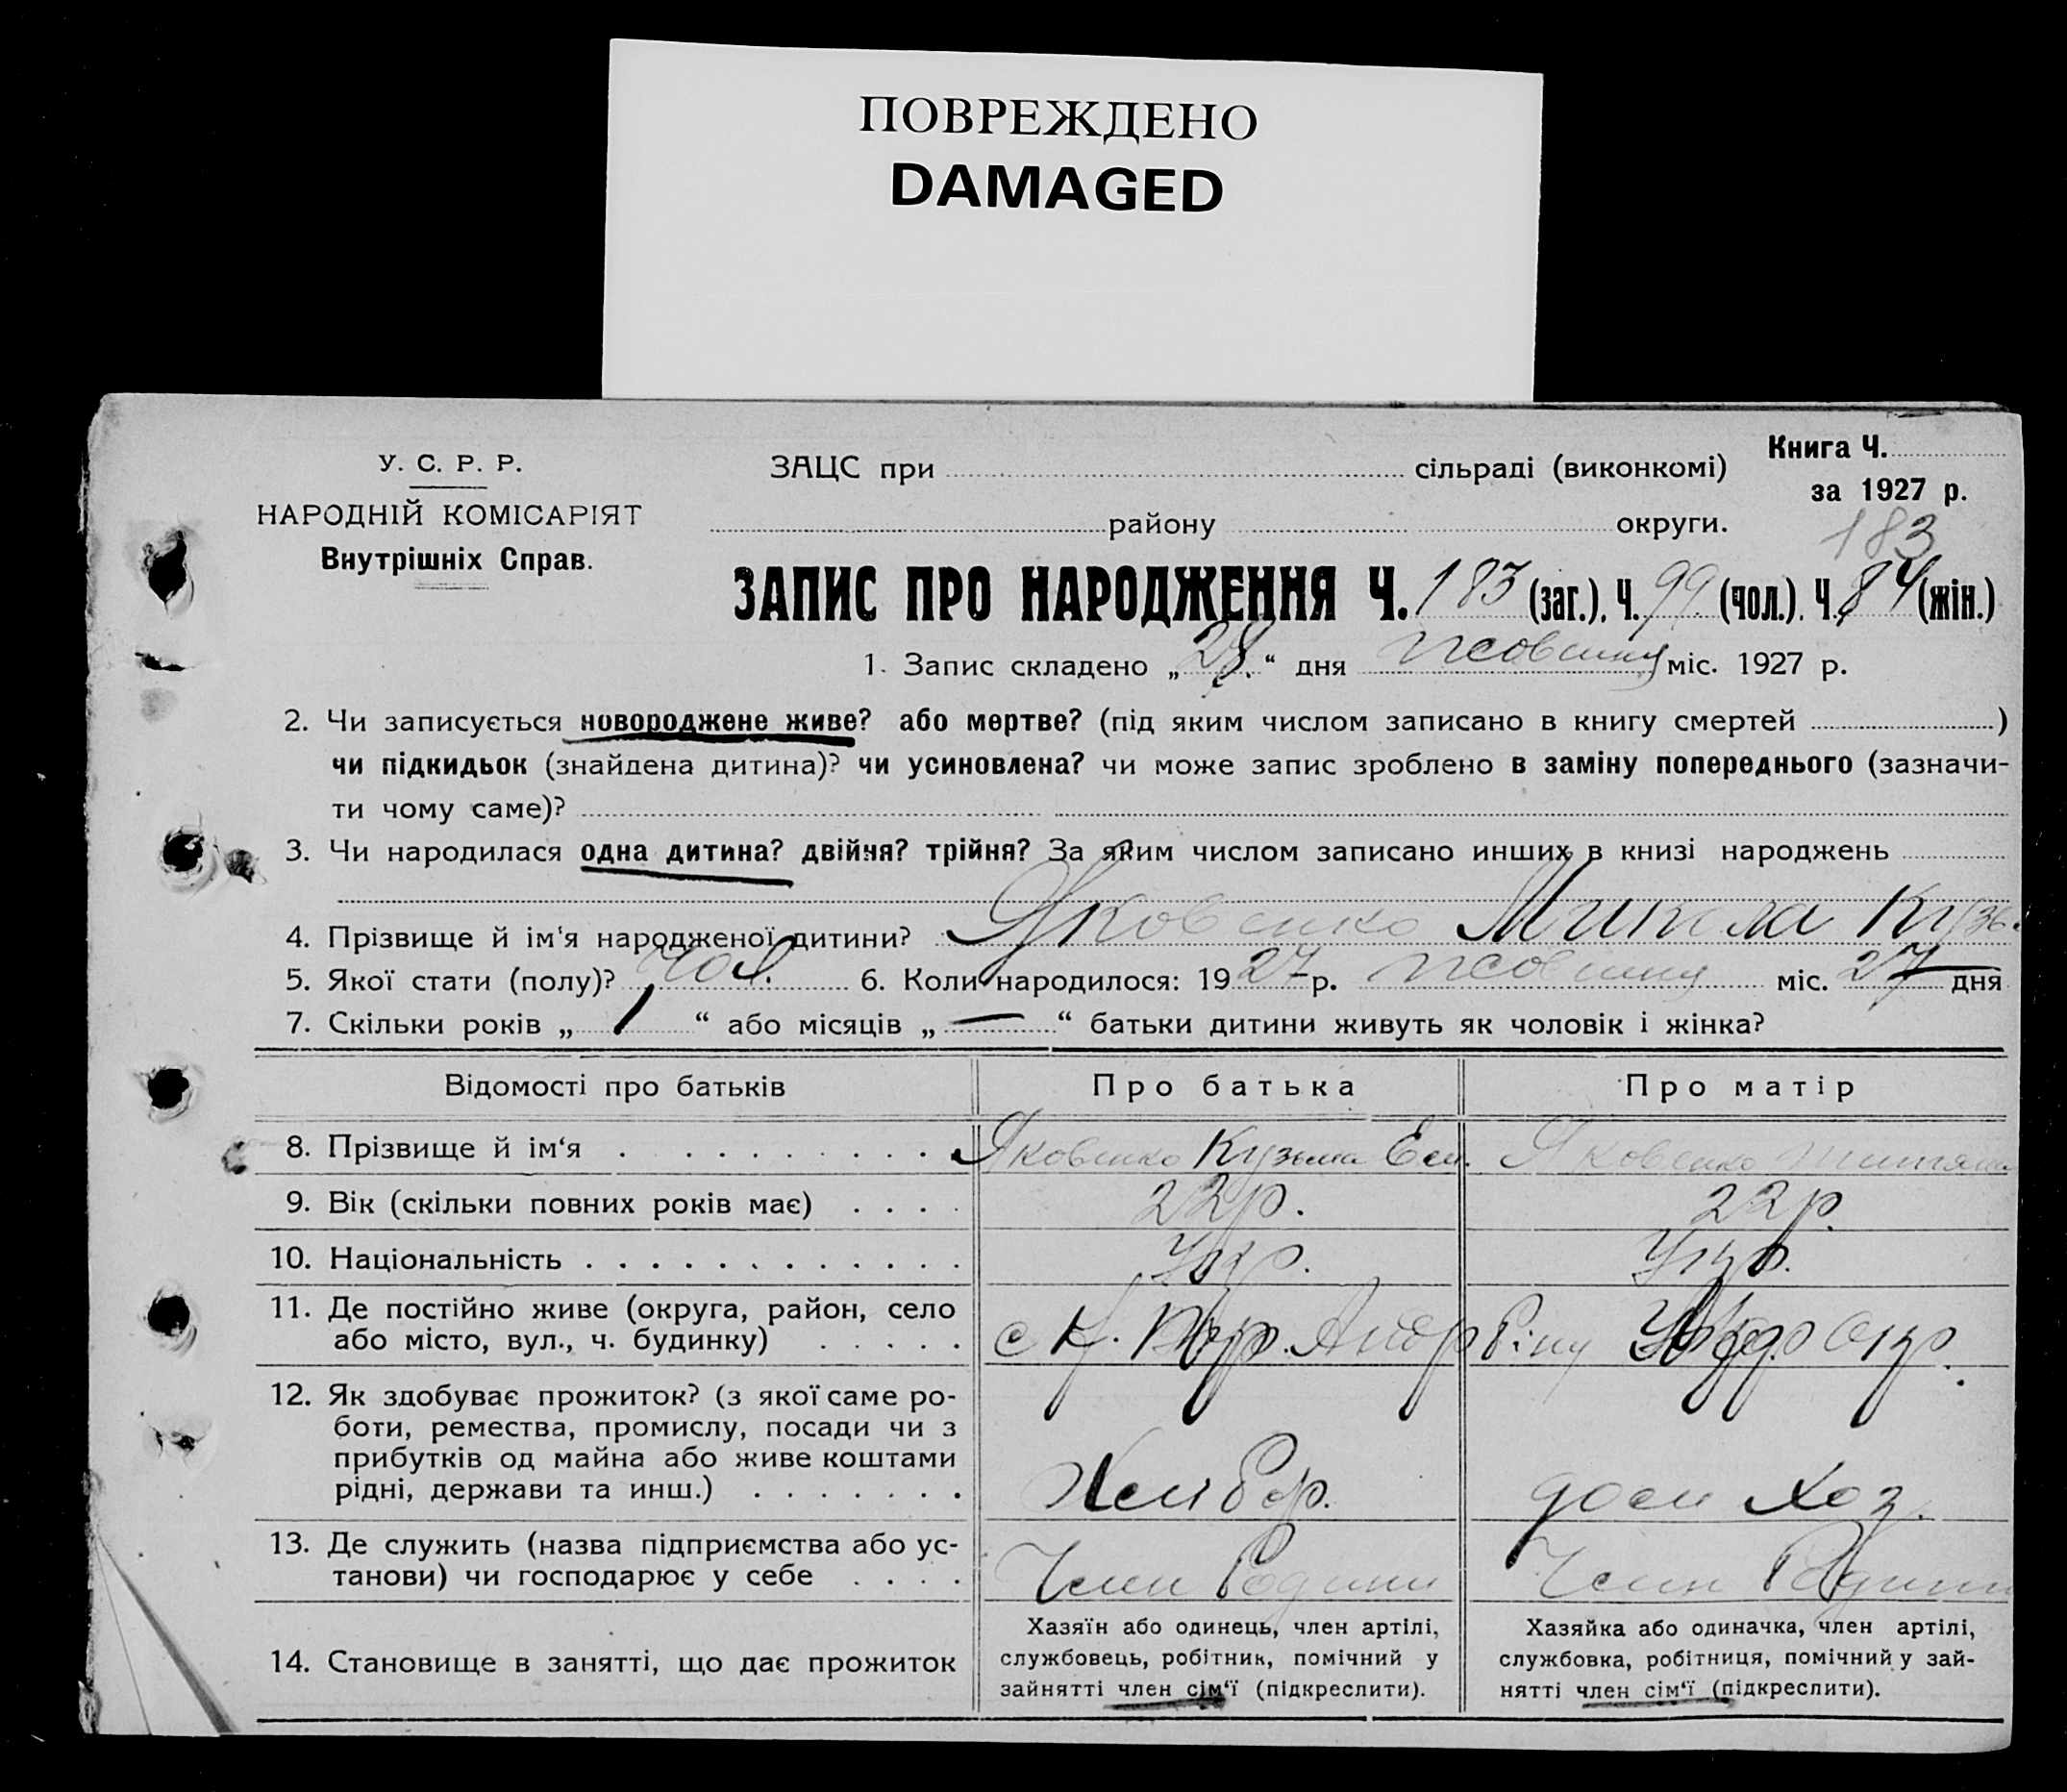 ПОВРЕЖДЕНО
DAMAGED
У. С. Р. Р.
НАРОДНІЙ КОМІСАРІЯТ
Внутрішніх Справ.
ЗАЦС при сільраді (виконкомі)
району округи.
Книга Ч.
за 1927 р.
183
ЗАПИС ПРО НАРОДЖЕННЯ Ч. 183 (заг.), Ч. 99 (чол.). Ч. 84 (жін.)
1. Запис складено „28“ дня жовтня міс. 1927 р.
2. Чи записується новороджене живе? або мертве? (під яким числом записано в книгу смертей )
чи підкидьок (знайдена дитина)? чи усиновлена? чи може запис зроблено в заміну попереднього (зазначи-
ти чому саме)?
3. Чи народилася одна дитина? двійня? трійня? За яким числом записано инших в книзі народжень
4. Прізвище й ім'я народженої дитини? Яковенко Микола Кузь.
5. Якої стати (полу)? чол. 6. Коли народилося: 1927 р. жовтня міс. 27 дня
7. Скільки років „ 1 “ або місяців „ — “ батьки дитини живуть як чоловік і жінка?
Відомості про батьків Про батька Про матір
8. Прізвище й ім'я Яковенко Кузьма Яковенко
9. Вік (скільки повних років має) 22 р. 22 р.
10. Національність Укр. Укр.
11. Де постійно живе (округа, район, село
або місто, вул., ч. будинку)
12. Як здобуває прожиток? (з якої саме ро-
боти, ремества, промислу, посади чи з
прибутків од майна або живе коштами
рідні, держави та инш.) Хлібор. дом хоз.
13. Де служить (назва підприємства або ус-
танови) чи господарює у себе Член Родини Член Родини
14. Становище в занятті, що дає прожиток
Хазяїн або одинець, член артілі,
службовець, робітник, помічний у
зайнятті член сім'ї (підкреслити).
Хазяйка або одиначка, член артілі,
службовка, робітниця, помічний у зай-
нятті член сім'ї (підкреслити).